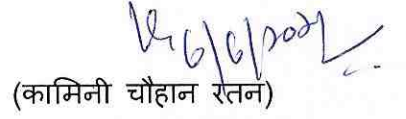 6/6/2024
(कामिनी चौहान रतन)